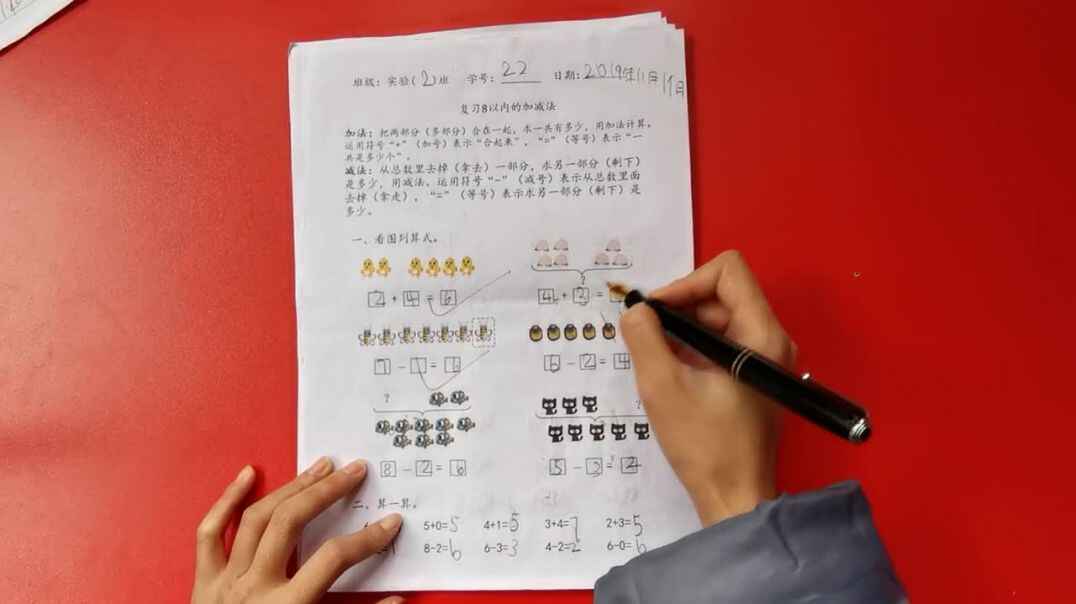 班级：实验(2)班 学号：22 日期：2019年11月19日
复习8以内的加减法
加法：把两部分（多部分）合在一起，求一共有多少，用加法计算。
运用符号“+”（加号）表示“合起来”，“=”（等号）表示“一
共是多少个”。
减法：从总数里去掉（拿去）一部分，求另一部分（剩下）
是多少，用减法，运用符号“-”（减号）表示从总数里面
去掉（拿走），“=”（等号）表示求另一部分（剩下）是
多少。
一、看图列算式。
?
2+4=6
4+3=
7-1=6
6-2=4
?
?
8-2=6
5-3=2
二、算一算。
5+0=5 4+1=5 3+4=7 2+3=5
8-2=6 6-3=3 4-2=2 6-0=6